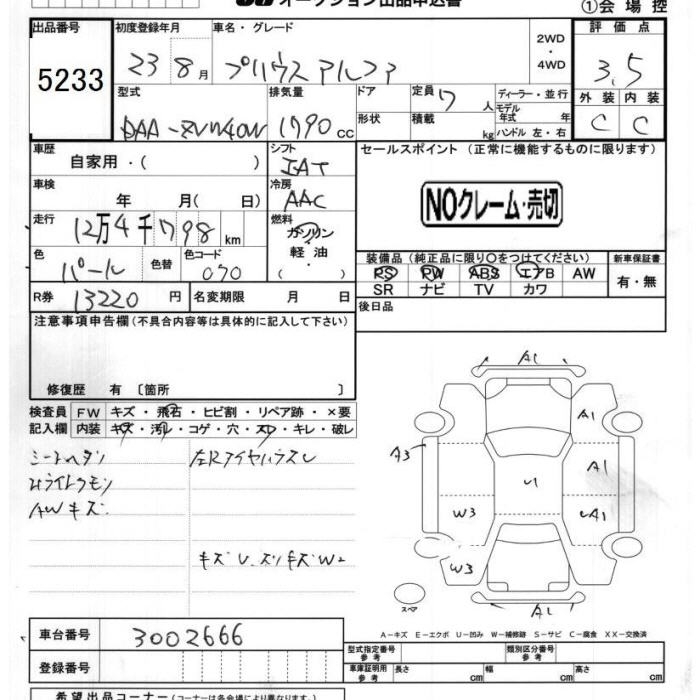 オークション出品申込書
①会場控
出品番号
5233
初度登録年月
23 8月
車名・グレード
プリウスアルファ
2WD
・
4WD
評価点
3,5
型式
DAA-ZVW40W
排気量
1790 cc
ドア
形状
定員 7 人
積載 kg
ディーラー・並行
モデル年式 年
ハンドル 左・右
外装 内装
C C
車歴
自家用・( )
シフト
IAT
セールスポイント (正常に機能するものに限ります)
NOクレーム・売切
車検
年 月( 日)
冷房
AAC
走行
12万4千798 km
燃料
ガソリン
軽油
・( )
色
パール
色替
色コード
070
装備品 (純正品に限り○をつけてください)
PS PW ABS エアB AW
SR ナビ TV カワ
新車保証書
有・無
R券 13220 円
名変期限 月 日
後日品
注意事項申告欄 (不具合内容等は具体的に記入して下さい)
修復歴 有 〔箇所 〕
検査員記入欄
FW キズ・飛石・ヒビ割・リペア跡・×要
内装 キズ・汚レ・コゲ・穴・スレ・キレ・破レ
シートヘタリ
AWキズ
キズU.スリキズW2
A1
A1
A3
A1
U
W3
UA1
W3
A1
スペア
A-キズ E-エクボ U-凹み W-補修跡 S-サビ C-腐食 XX-交換済
車台番号
3002666
登録番号
型式指定番号 参考
類別区分番号 参考
車庫証明用 参考
長さ cm
幅 cm
高さ cm
希望出品コーナー (コーナーは各会場により異なります。)